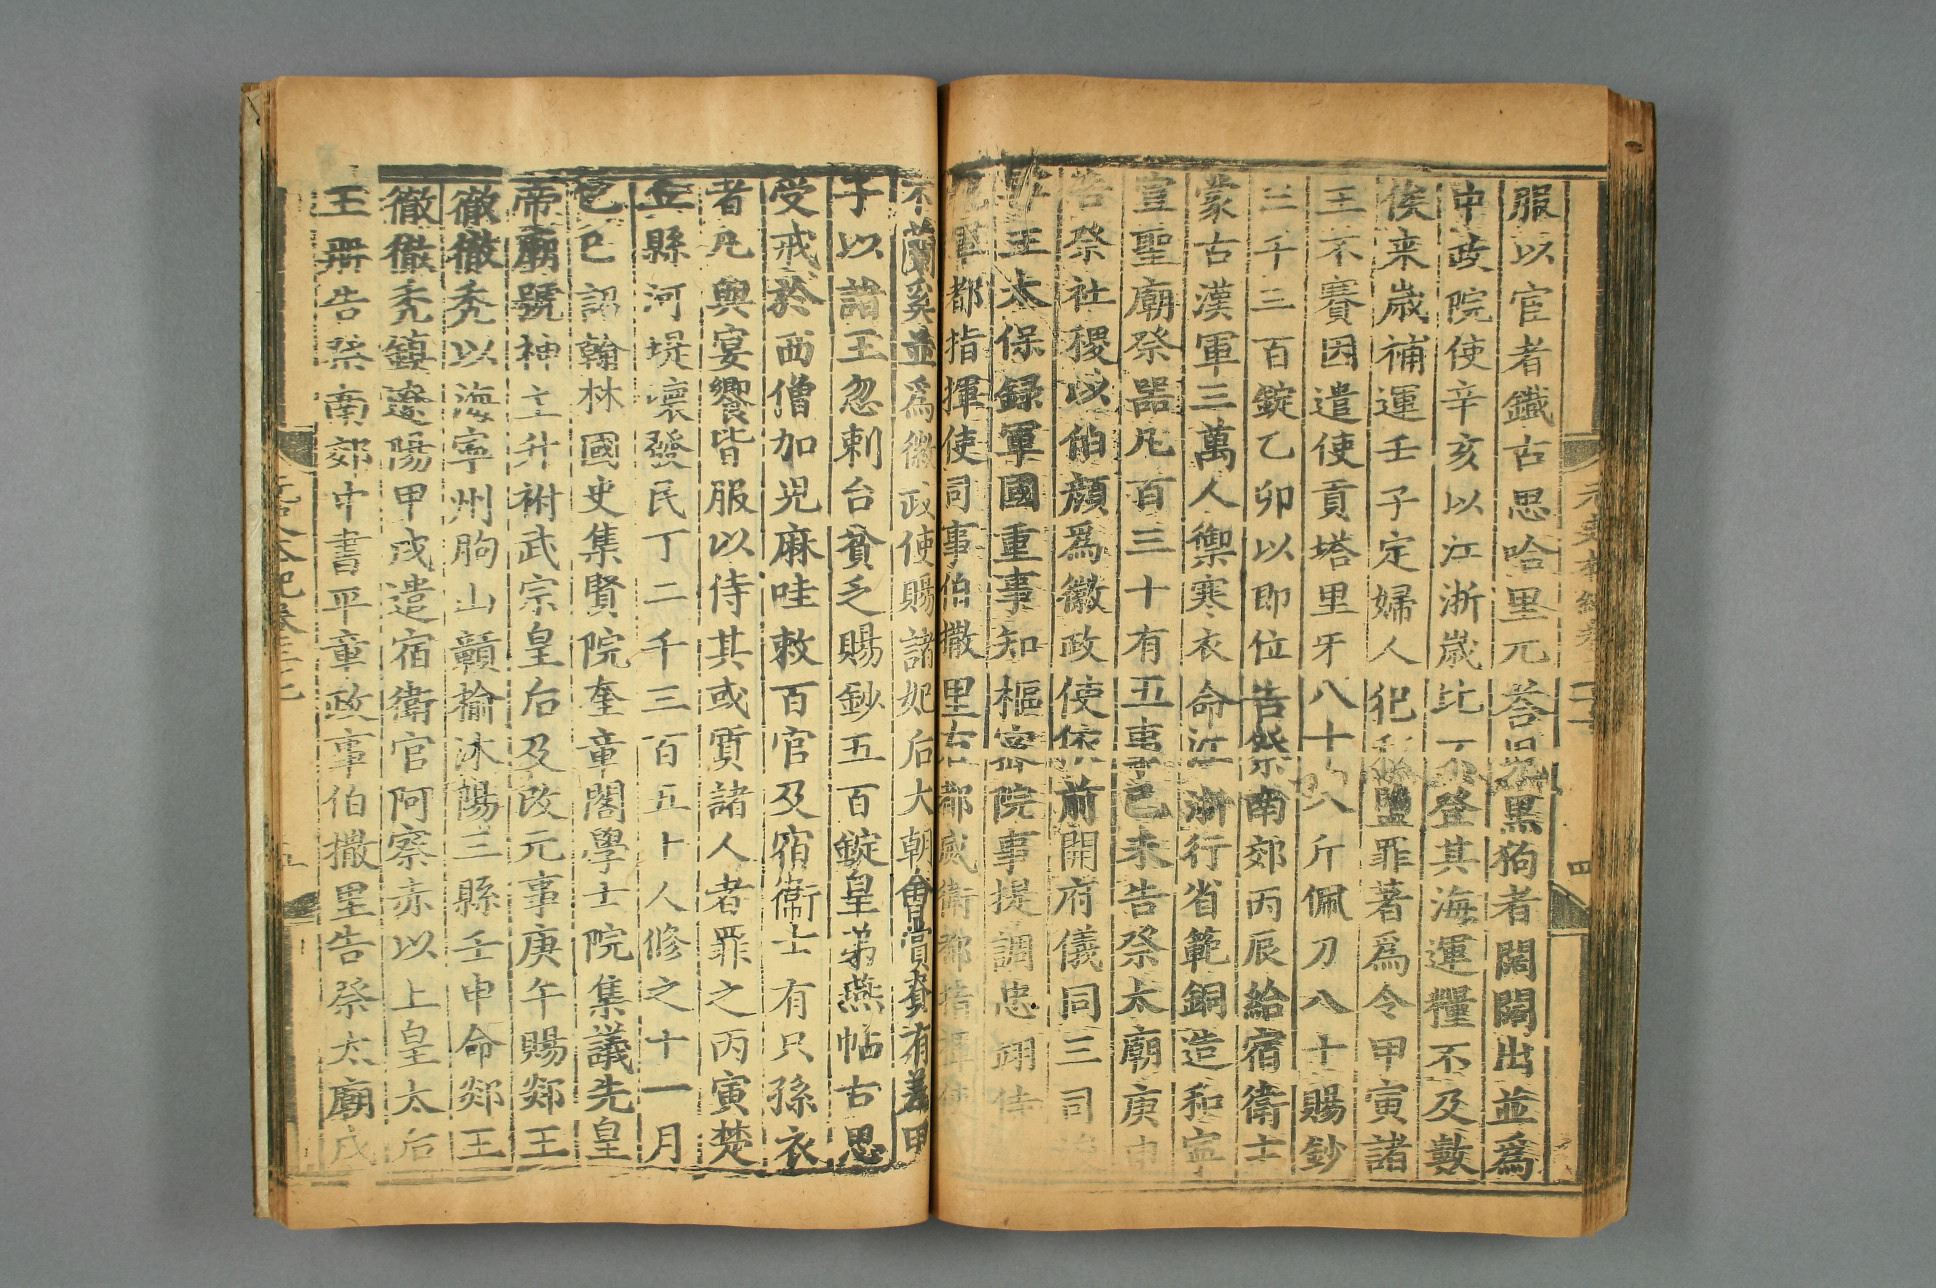 服以宦者鐵古思哈里元荅兒黑狗者闊闊出並爲
中政院使辛亥以江浙歲比不登其海運糧不及數
俟来歲補運壬子定婦人犯私鹽罪著爲令甲寅諸
王不賽因遣使貢塔里牙八十八斤佩刀八十賜鈔
三千三百錠乙卯以即位告祭南郊丙辰給宿衛士
蒙古漢軍三萬人禦寒衣命江浙行省範銅造和寧
宣聖廟祭噐凡百三十有五事己未告祭太廟庚申
告祭社稷以伯顏爲徽政使依前開府儀同三司
王太保録軍國重事知樞密院事提調忠翊侍
都指揮使司事伯撒里右都威衛都指揮使
不蘭奚並爲徽政使賜諸妃后大朝會賞賚有差甲
子以諸王忽剌台貧乏賜鈔五百錠皇弟燕帖古思
受戒於西僧加兒麻哇敕百官及宿衛士有只孫衣
者凡與宴饗皆服以侍其或質諸人者罪之丙寅楚
丘縣河堤壞發民丁二千三百五十人修之十一月
己巳詔翰林國史集賢院奎章閣學士院集議先皇
帝廟號神主升祔武宗皇后及改元事庚午賜郯王
徹徹禿以海寧州朐山贛榆沭陽三縣壬申命郯王
徹徹禿鎮遼陽甲戌遣宿衛官阿察赤以上皇太后
玉册告祭南郊中書平章政事伯撒里告祭太廟戊
元史本紀卷三十
五
四